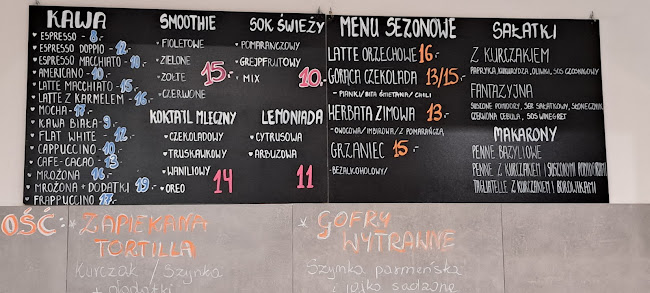 KAWA
♥ ESPRESSO - 8.-
♥ ESPRESSO DOPPIO - 12.-
♥ ESPRESSO MACCHIATO - 10.-
♥ AMERICANO - 10.-
♥ LATTE MACCHIATO - 15.-
♥ LATTE Z KARMELEM - 16.-
♥ MOCHA - 17.-
♥ KAWA BIAŁA - 9.-
♥ FLAT WHITE - 12.-
♥ CAPPUCCINO - 10.-
♥ CAFE-CACAO - 13.-
♥ MROŻONA - 16.-
♥ MROŻONA + DODATKI - 19.-
♥ FRAPPUCCINO - 17.-
SMOOTHIE
• FIOLETOWE
• ZIELONE
• ŻÓŁTE
• CZERWONE
15.-
KOKTAJL MLECZNY
• CZEKOLADOWY
• TRUSKAWKOWY
• WANILIOWY
• OREO
14
SOK ŚWIEŻY
• POMARAŃCZOWY
• GREJPFRUTOWY
• MIX
10.-
LEMONIADA
• CYTRUSOWA
• ARBUZOWA
11
MENU SEZONOWE
LATTE ORZECHOWE 16.-
GORĄCA CZEKOLADA 13/15.-
- PIANKI/BITA ŚMIETANA/CHILI
HERBATA ZIMOWA 13.-
- OWOCOWA/IMBIROWA/Z POMARAŃCZĄ
GRZANIEC 15.-
- BEZALKOHOLOWY/
SAŁATKI
Z KURCZAKIEM
PAPRYKA, KUKURYDZA, OLIWKI, SOS CZOSNKOWY
FANTAZYJNA
SUSZONE POMIDORY, SER SAŁATKOWY, SŁONECZNIK
CZERWONA CEBULA, SOS WINEGRET
MAKARONY
PENNE BAZYLIOWE
PENNE Z KURCZAKIEM I SUSZONYMI POMIDORAMI
TAGLIATELLE Z KURCZAKIEM I BOROWIKAMI
OŚĆ:
* ZAPIEKANA
TORTILLA
Kurczak / Szynka
+ dodatki
* GOFRY
WYTRAWNE
Szynka parmeńska
+ jajko sadzone